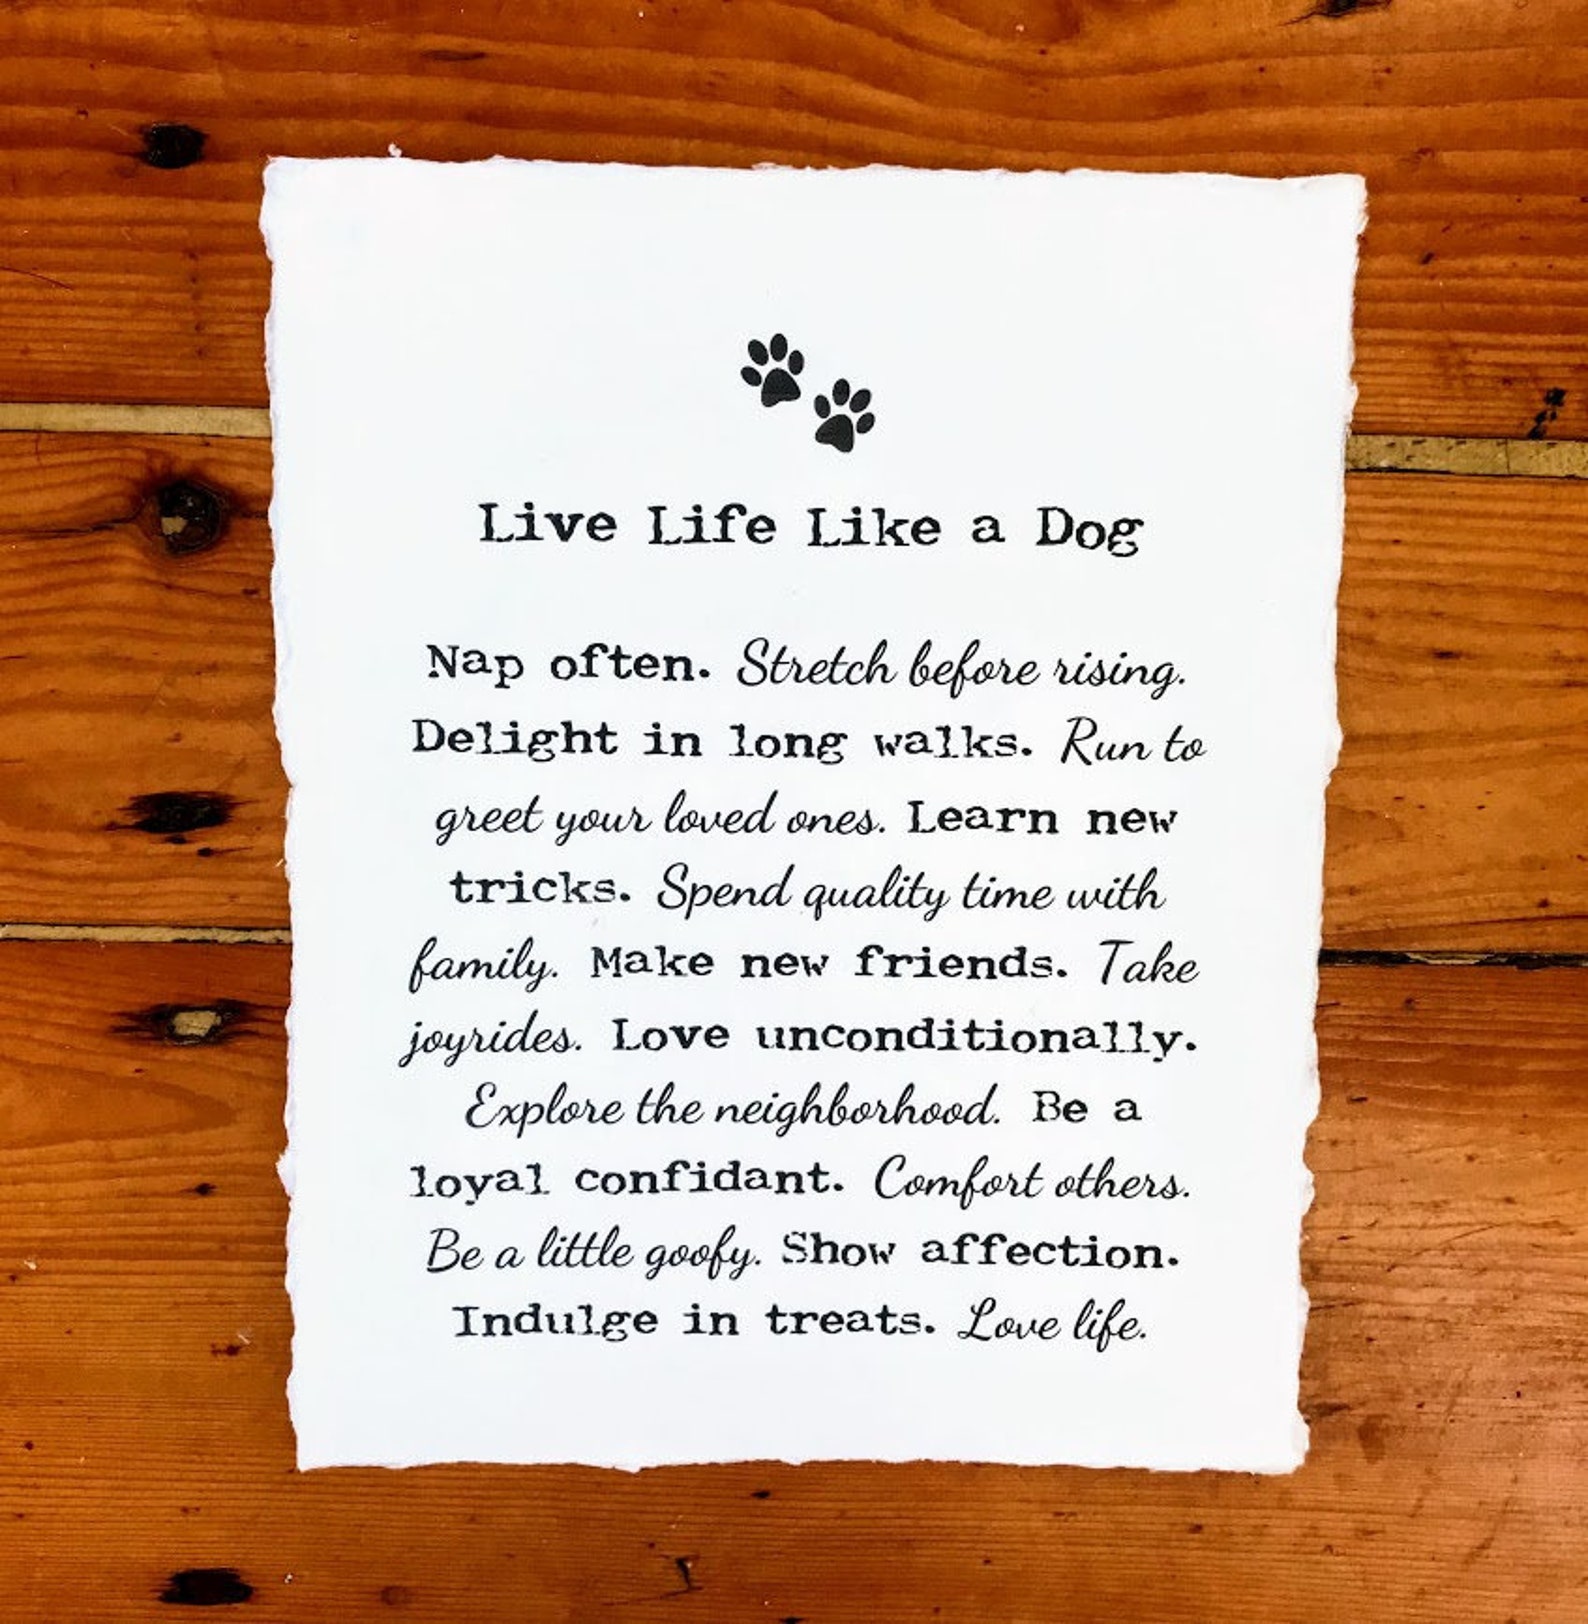 Live Life Like a Dog
Nap often. Stretch before rising.
Delight in long walks. Run to
greet your loved ones. Learn new
tricks. Spend quality time with
family. Make new friends. Take
joyrides. Love unconditionally.
Explore the neighborhood. Be a
loyal confidant. Comfort others.
Be a little goofy. Show affection.
Indulge in treats. Love life.